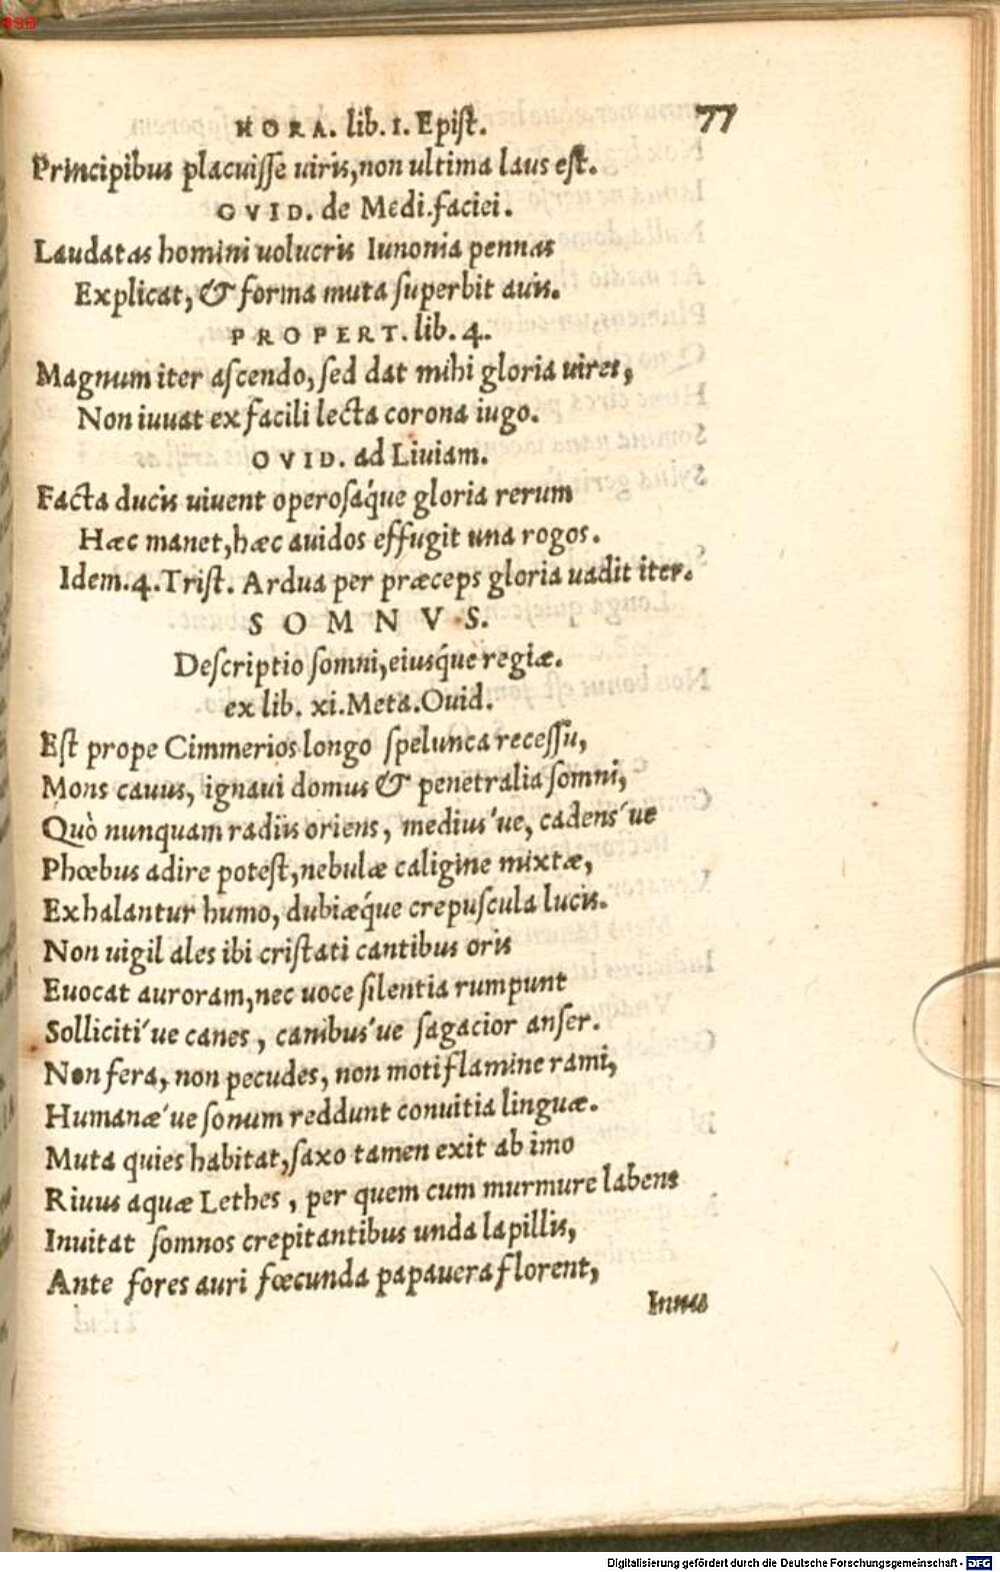 HORA. lib. 1. Epiſt. 77
Principibus placuiſſe uiris, non ultima laus eſt.
OVID. de Medi. faciei.
Laudatas homini uolucris Iunonia pennas
Explicat, & forma muta ſuperbit auis.
PROPERT. lib. 4.
Magnum iter aſcendo, ſed dat mihi gloria uires,
Non iuuat ex facili lecta corona iugo.
OVID. ad Liuiam.
Facta ducis uiuent operoſáque gloria rerum
Hæc manet, hæc auidos effugit una rogos.
Idem. 4. Triſt. Ardua per præceps gloria uadit iter.
SOMNVS.
Deſcriptio ſomni, eiusq́ue regiæ.
ex lib. xi. Meta. Ouid.
Eſt prope Cimmerios longo ſpelunca receſſu,
Mons cauus, ignaui domus & penetralia ſomni,
Quò nunquam radiis oriens, medius'ue, cadens'ue
Phœbus adire poteſt, nebulæ caligine mixtæ,
Exhalantur humo, dubiæq́ue crepuſcula lucis.
Non uigil ales ibi criſtati cantibus oris
Euocat auroram, nec uoce ſilentia rumpunt
Solliciti'ue canes, canibus'ue ſagacior anſer.
Non fera, non pecudes, non moti flamine rami,
Humanæ'ue ſonum reddunt conuitia linguæ.
Muta quies habitat, ſaxo tamen exit ab imo
Riuus aquæ Lethes, per quem cum murmure labens
Inuitat ſomnos crepitantibus unda lapillis,
Ante fores auri fœcunda papauera florent,
Innu
Digitalisierung gefördert durch die Deutsche Forschungsgemeinschaft - DFG